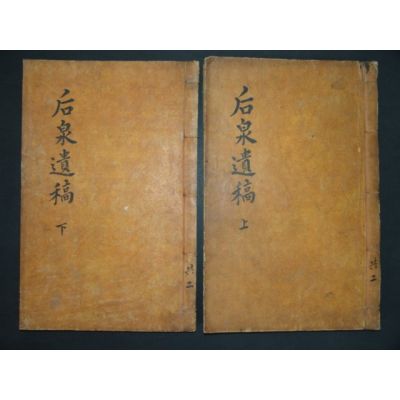 后泉遺稿
上
共二
后泉遺稿
下
共二